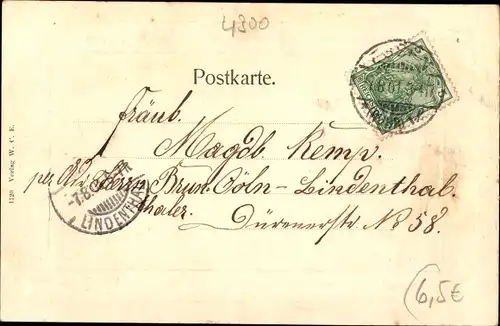 4300
Postkarte.
Fräul.
Magdl. Kemp.
per Adr. Herrn Brun. Cöln-Lindenthal.
thaler.
Dürenerstr. No 58.
LINDENTHAL
1720 Verlag W. C. E.
6,5€